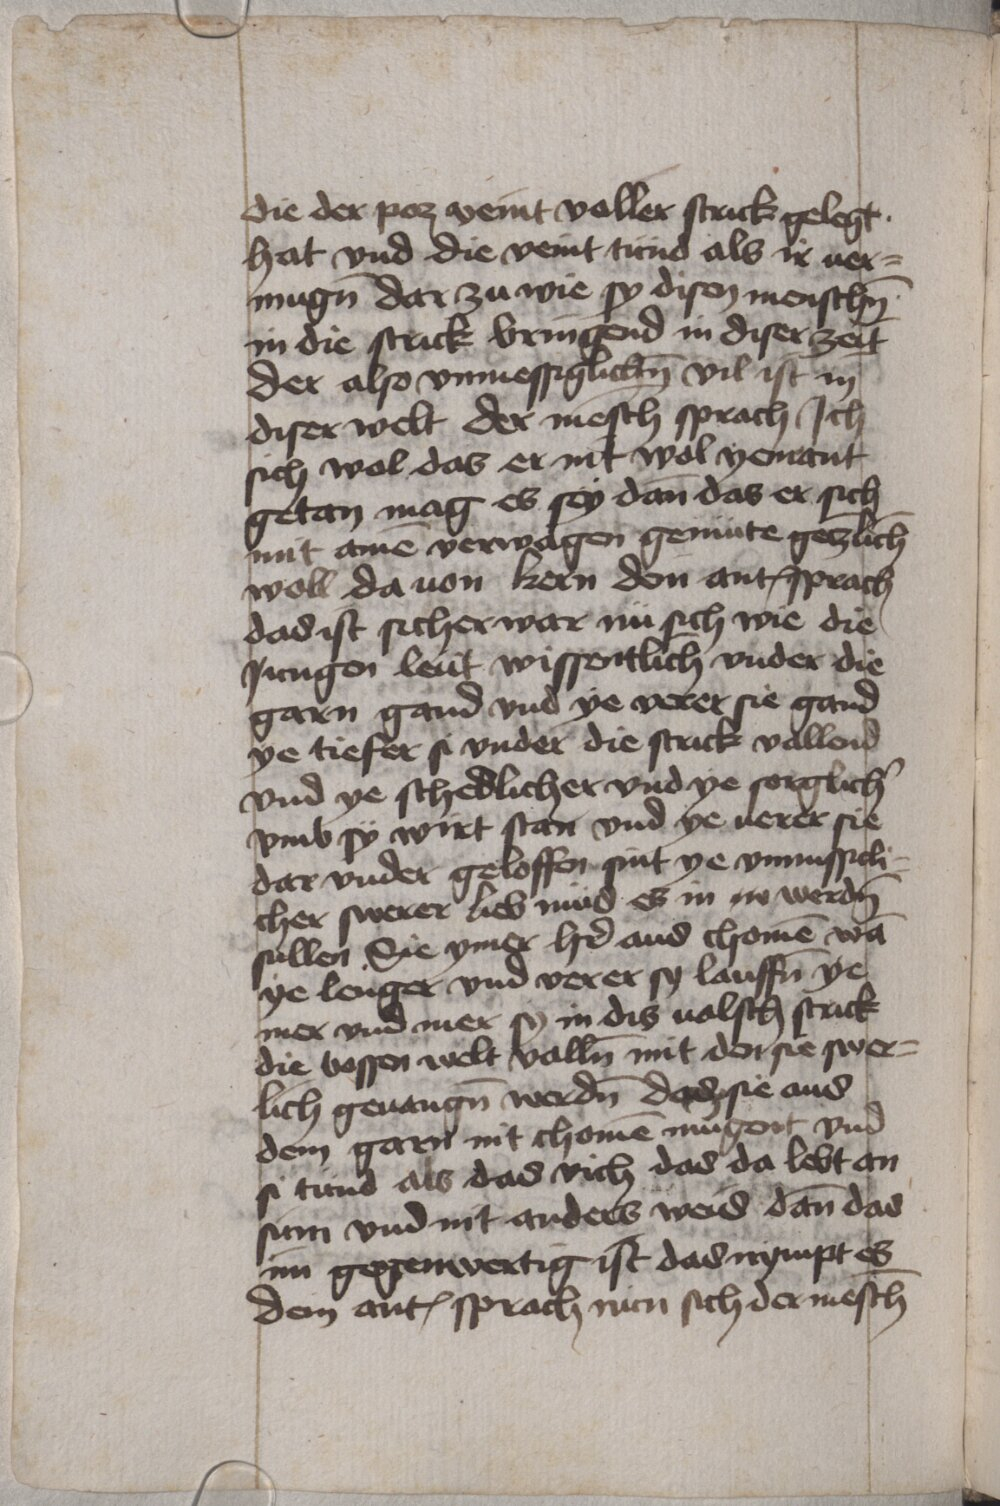 die der poz veint voller strick gelegt ·
hat vnd die veint tund als ir uer=
mugn̄ dar zu wie sy disen menschn̄
in die strick bringend in diser zeit
der also vnmessiglichn̄ vil ist in
diser welt der mēsch sprach Ich
sich wol das er nit wol yemant
getan mag es sey dan̄ das er sich
mit amē verwagen gemüte genzlich
woll da uon kern den ant sprach
das ist sicher war nu sich wie die
Jungen leut wissentlich vnder die
garn gand vnd ye verer sie gand
ye tiefer si vnder die strick vallend
vnd ye schedlicher vnd ye sorglich'
vmb sy wirt stan vnd ye uerer sie
dar vnder geloffen sint ye vnmussicli=
cher swerer es in werdn̄
sullen Sie ymer aus chomē wā
ye lenger vnd verer sy lauffn̄ ye
mer vnd mer sy in dis ualsch strick
die bossen welt valln̄ mit den sie swer=
lich geuangn̄ werdn̄ das sie aus
dem garn nit chomē mugent vnd
si tund als das vich das da lebt an
sinn vnd nit anders weis dan̄ das
im gegenwertig ist das nympt es
dem ant sprach nun sich der mēsch